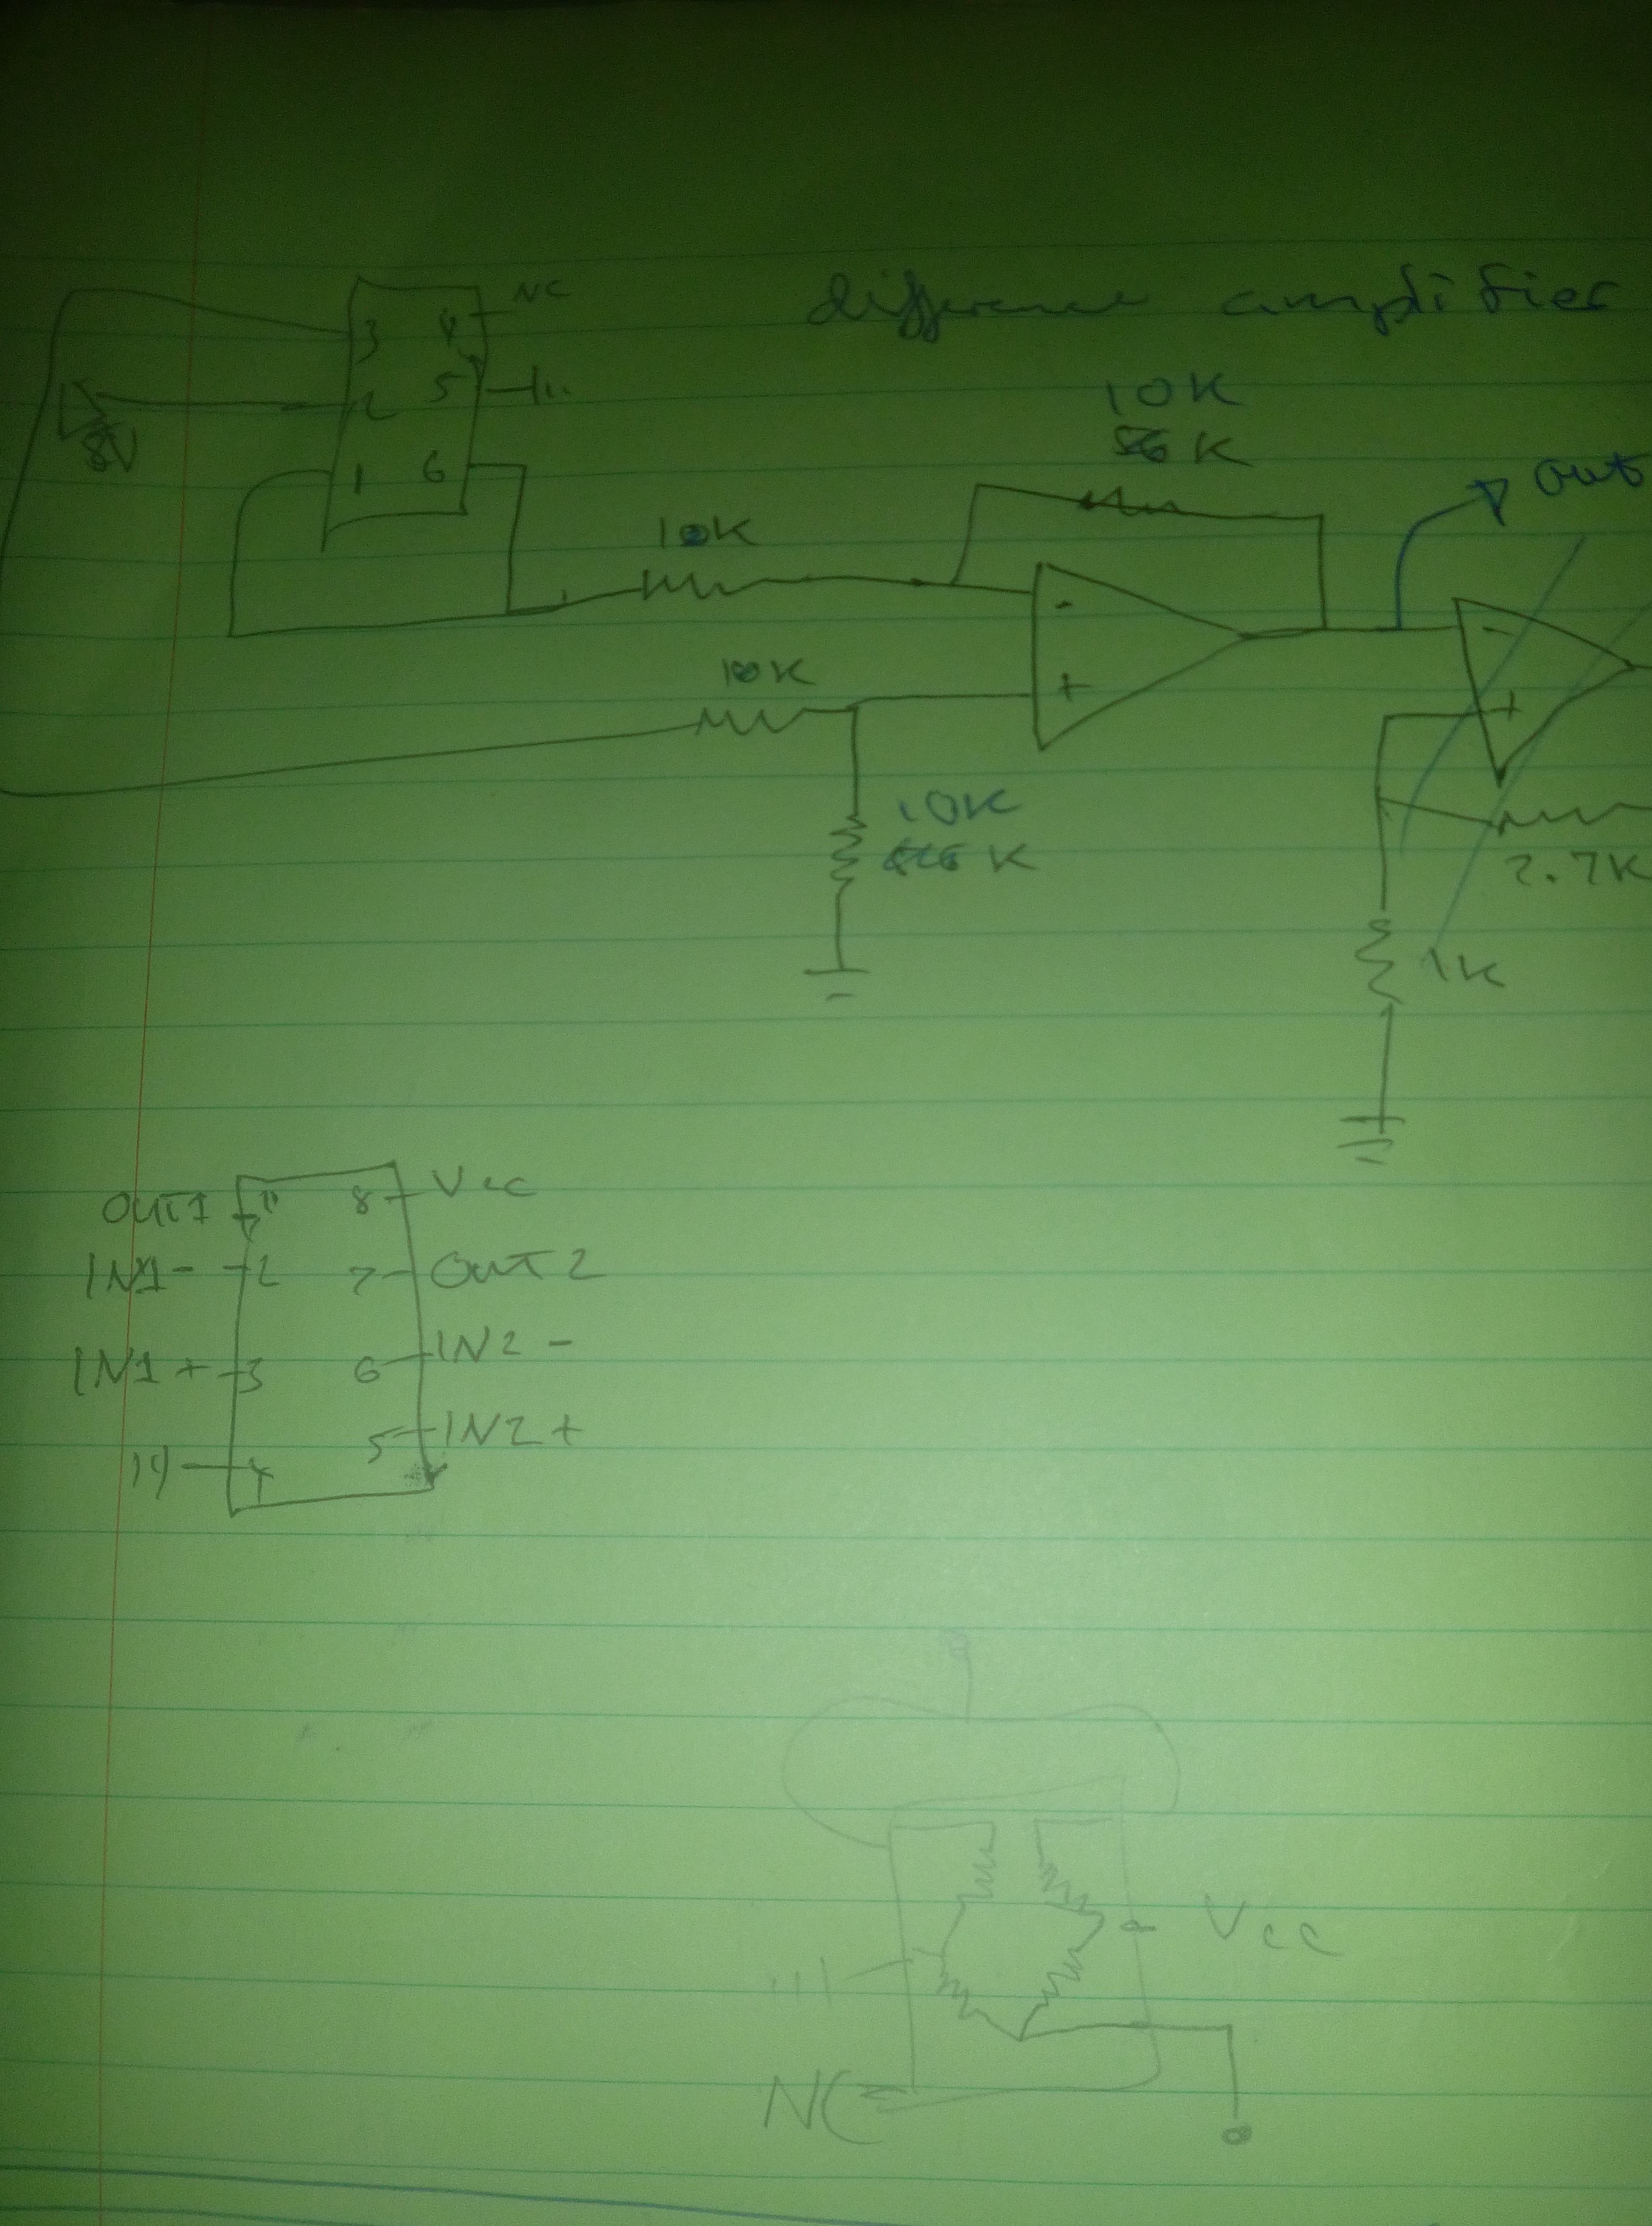 NC
difference amplifier
3 4
2 5
8V
1 6
10K
56K
out
10K
-
+
-
+
10K
10K
K
2.7K
1K
OUT1 1 8 Vcc
IN1- 2 7 OUT2
IN1+ 3 6 IN2-
4 5 IN2+
Vcc
NC